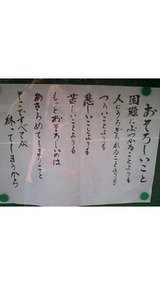 おそろしいこと
困難にぶつかることよりも
人にうらぎられることよりも
つらいことよりも
悲しいことよりも
苦しいことよりも
もっとおそろしいのは
あきらめてしまうこと
そこですべてが
終ってしまうから